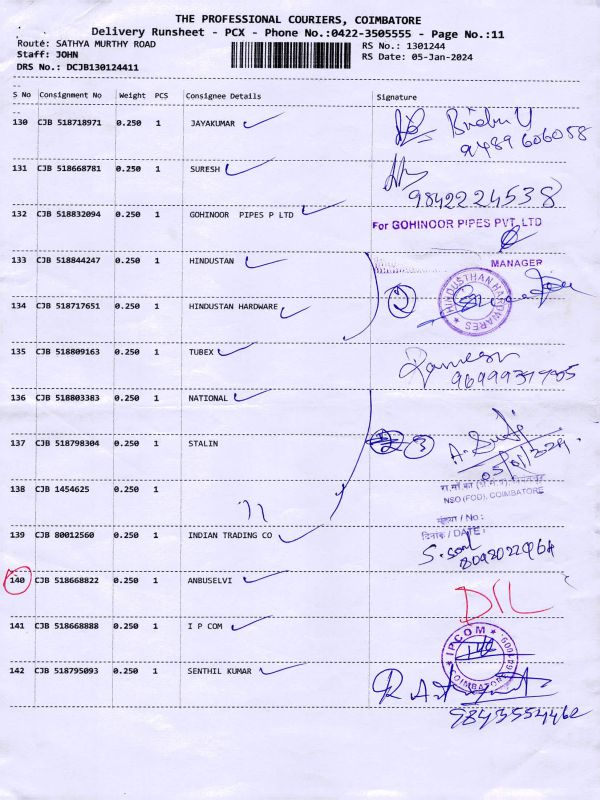 THE PROFESSIONAL COURIERS, COIMBATORE
Delivery Runsheet - PCX - Phone No.:0422-3505555 - Page No.:11
Route: SATHYA MURTHY ROAD RS No.: 1301244
Staff: JOHN RS Date: 05-Jan-2024
DRS No.: DCJB130124411
S No Consignment No Weight PCS Consignee Details Signature
130 CJB 518718971 0.250 1 JAYAKUMAR
9489606058
131 CJB 518668781 0.250 1 SURESH
9842224538
132 CJB 518832094 0.250 1 GOHINOOR PIPES P LTD
For GOHINOOR PIPES PVT. LTD
MANAGER
133 CJB 518844247 0.250 1 HINDUSTAN
134 CJB 518717651 0.250 1 HINDUSTAN HARDWARE
2
HINDUSTHAN HARDWARES
135 CJB 518809163 0.250 1 TUBEX
Ramesh
136 CJB 518803383 0.250 1 NATIONAL
137 CJB 518798304 0.250 1 STALIN
3
05/01/2024
138 CJB 1454625 0.250 1
NSO (FOD), COIMBATORE
संख्या / No :
दिनांक / DATE :
139 CJB 80012560 0.250 1 INDIAN TRADING CO
140 CJB 518668822 0.250 1 ANBUSELVI
D/L
141 CJB 518668888 0.250 1 I P COM
IPCOM
COIMBATORE
142 CJB 518795093 0.250 1 SENTHIL KUMAR
9843554462